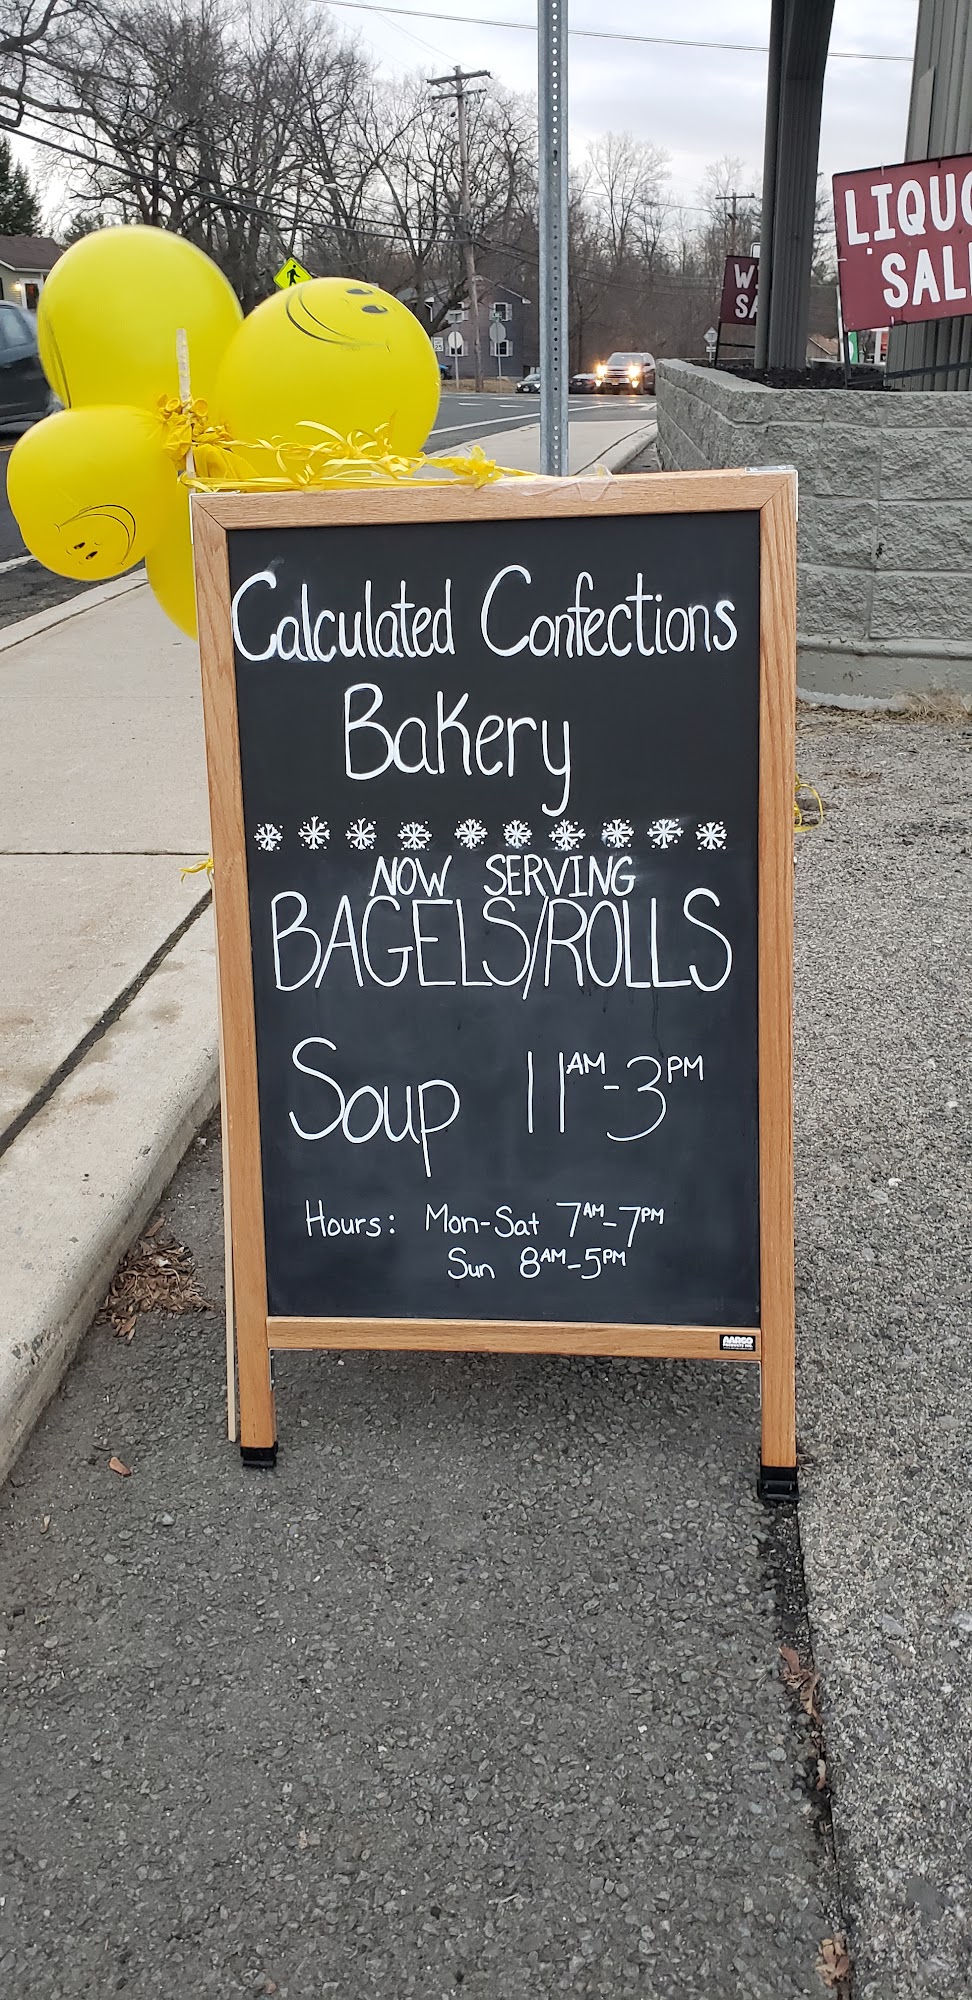 LIQUO
SAL
W
SA
25
Calculated Confections
Bakery
NOW SERVING
BAGELS/ROLLS
Soup 11AM-3PM
Hours: Mon-Sat 7AM-7PM
Sun 8AM-5PM
AARCO
PRODUCTS INC.